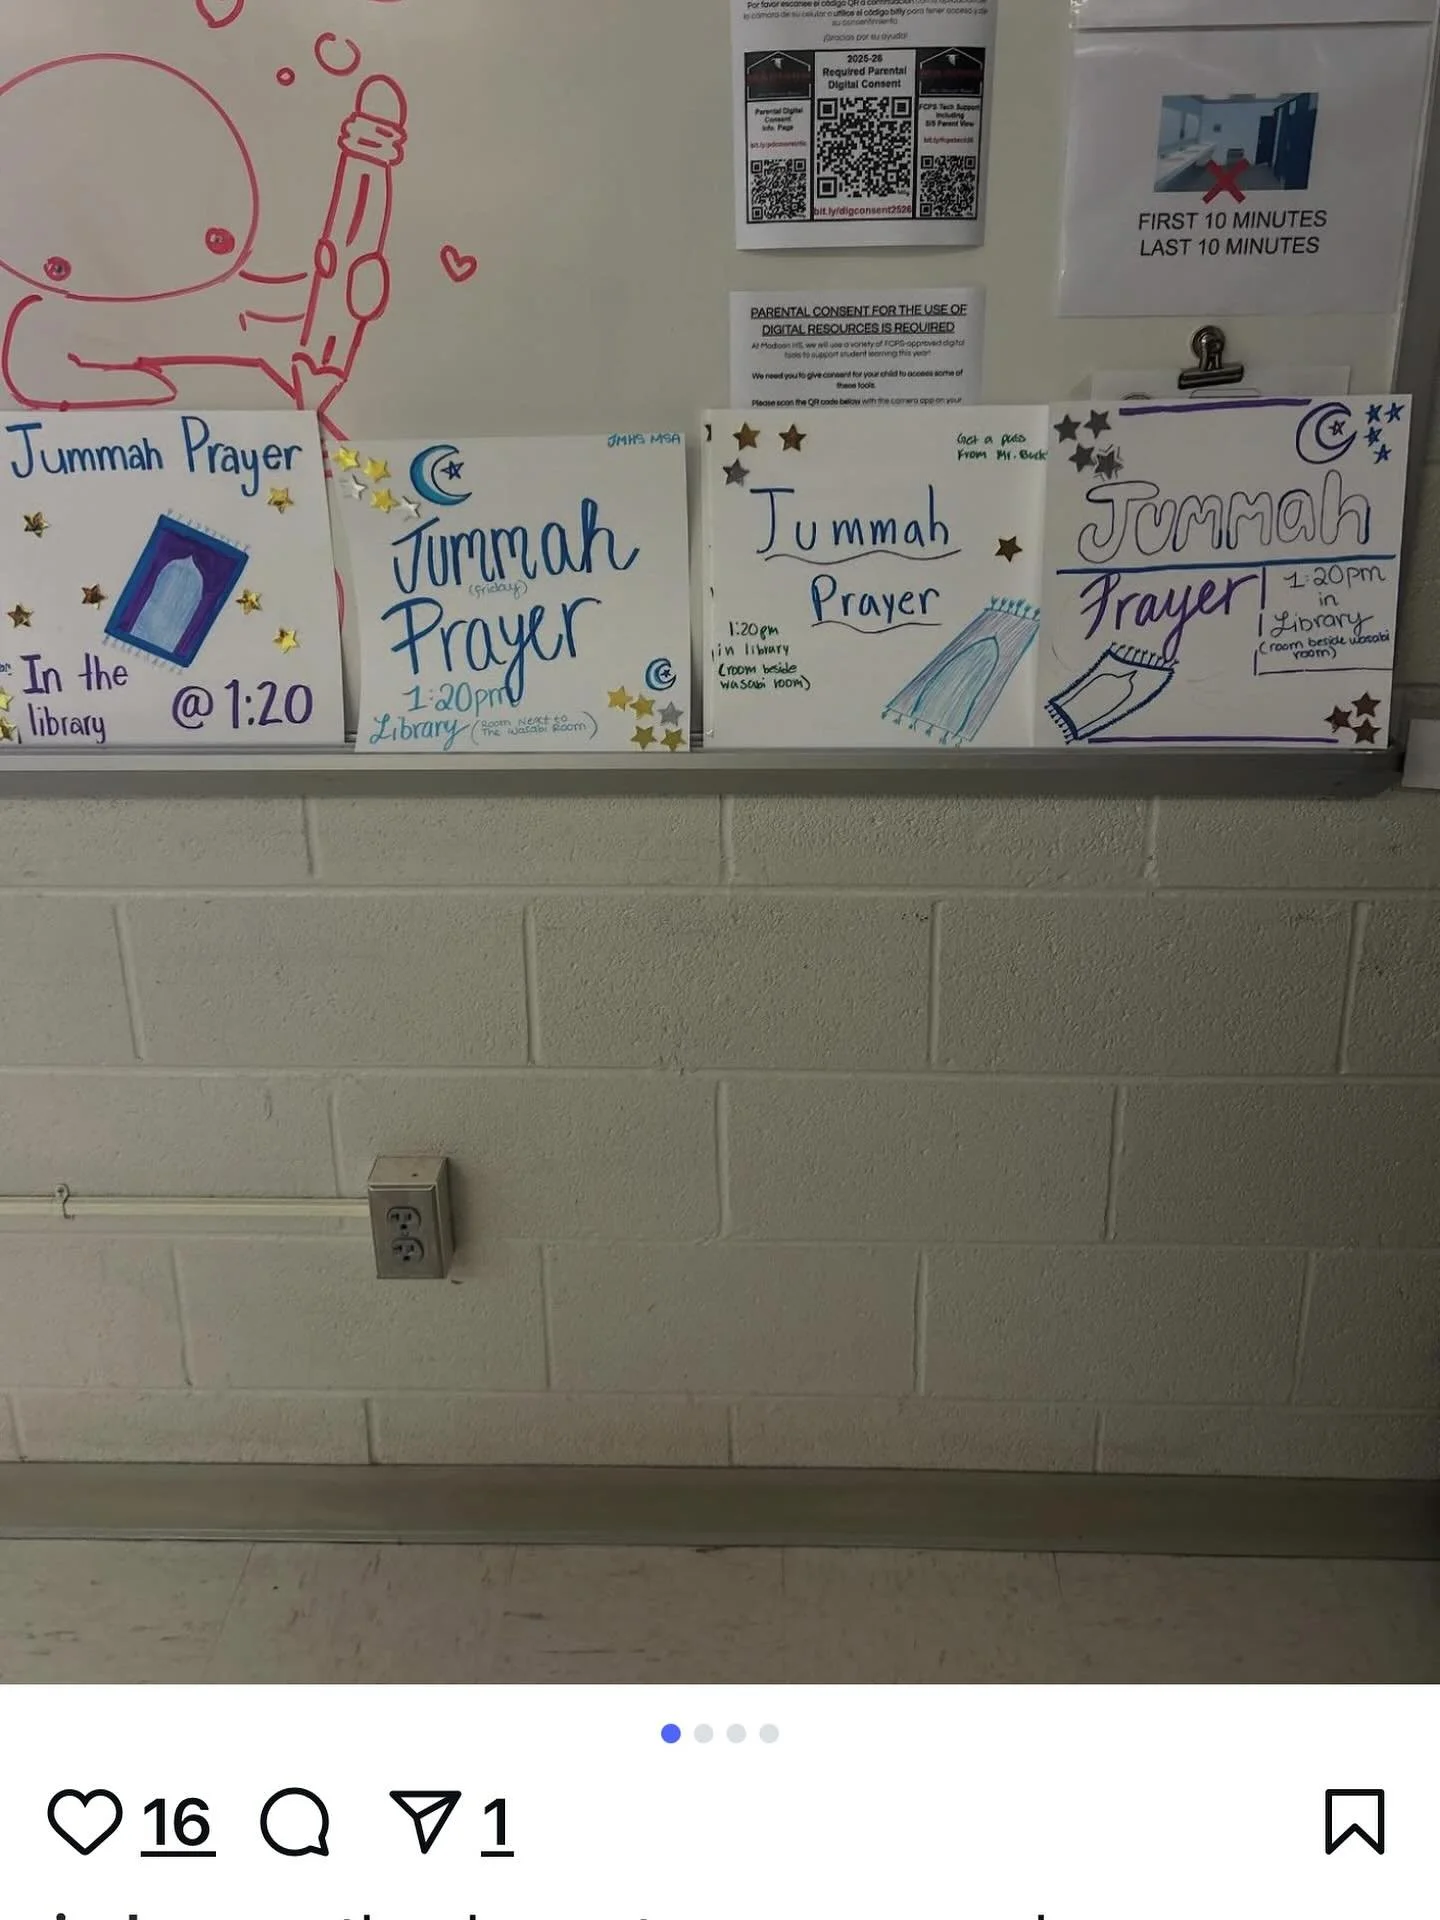 Por favor escanee el código QR a continuación
la cámara de su celular o utilice el código bitly para tener acceso y de
su consentimiento.
¡Gracias por su ayuda!
2025-26
Required Parental
Digital Consent
Parental Digital
Consent
Info. Page
FCPS Tech Support
Including
SIS Parent View
bit.ly/digconsent2526
FIRST 10 MINUTES
LAST 10 MINUTES
PARENTAL CONSENT FOR THE USE OF
DIGITAL RESOURCES IS REQUIRED
At Madison HS, we will use a variety of FCPS-approved digital
tools to support student learning this year!
We need you to give consent for your child to access some of
these tools.
Please scan the QR code below with the camera app on your
Jummah Prayer
In the
library
@ 1:20
JMHS MSA
Jummah
(friday)
Prayer
1:20pm
Library (Room Next to
The Wasabi Room)
Get a pass
From Mr. Buck
Jummah
Prayer
1:20pm
in library
(room beside
wasabi room)
Jummah
Prayer
1:20pm
in
Library
(room beside wasabi
room)
16
1